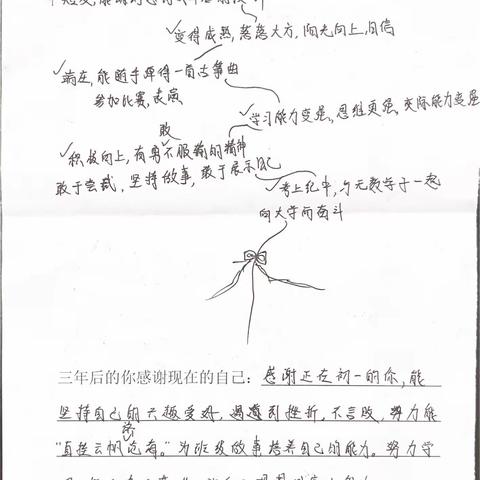 变得成熟，落落大方，阳光向上，自信
✓端庄，能随手弹得一首古筝曲
参加比赛，表演
✓学习能力变强，思维更强，实际能力变强
敢
✓积极向上，有勇不服输的精神
敢于尝试，坚持做事，敢于展示自己
✓考上纪中，与无数学子一起
向大学而奋斗
三年后的你感谢现在的自己：感谢正在初一的你，能
坚持自己的兴趣爱好，遇到挫折，不言败，努力能
"直挂云帆济沧海。"为班级做事培养自己的能力。努力学